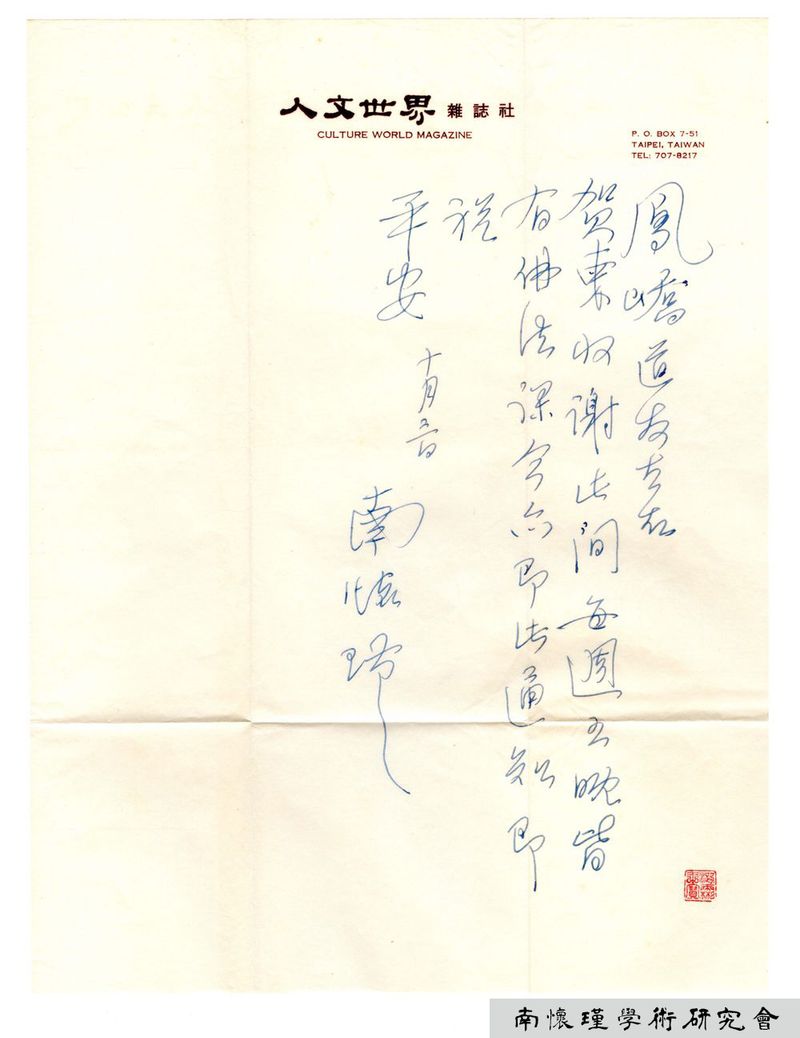 人文世界 雜誌社
CULTURE WORLD MAGAZINE
P. O. BOX 7-51
TAIPEI, TAIWAN
TEL: 707-8217
鳳嶠道友左右
賀柬收謝此間每週五晚皆
有佛法課會亦即此通知即
祝
平安
十月
南懷瑾
南懷瑾學術研究會